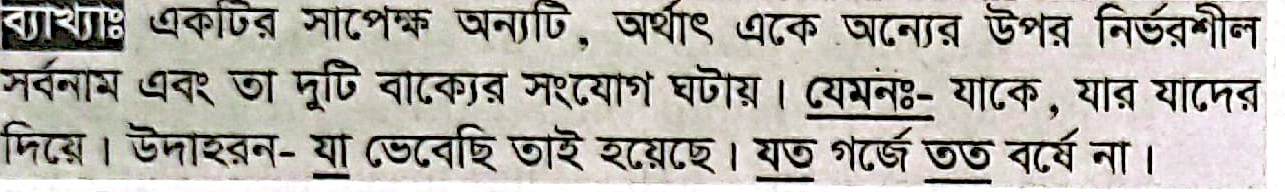 ব্যাখ্যাঃ একটির সাপেক্ষ অন্যটি, অর্থাৎ একে অন্যের উপর নির্ভরশীল
সর্বনাম এবং তা দুটি বাক্যের সংযোগ ঘটায়। যেমনঃ- যাকে, যার যাদের
দিয়ে। উদাহরন- যা ভেবেছি তাই হয়েছে। যত গর্জে তত বর্ষে না।